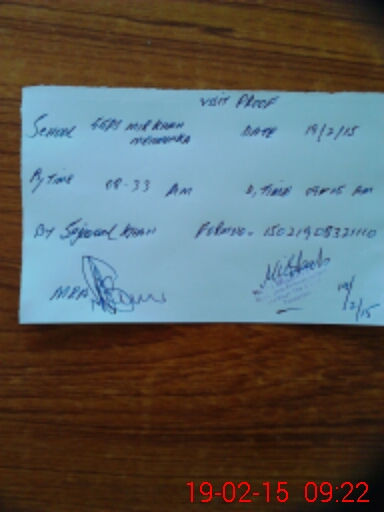 VISIT PROOF
School GGPS MIR KHAN DATE 19/2/15
By time 08-33 AM D, TIME 09:15 AM
BY Sajawal KHAN FORM NO- 15021908321110
MEA
19/2/15
19-02-15 09:22